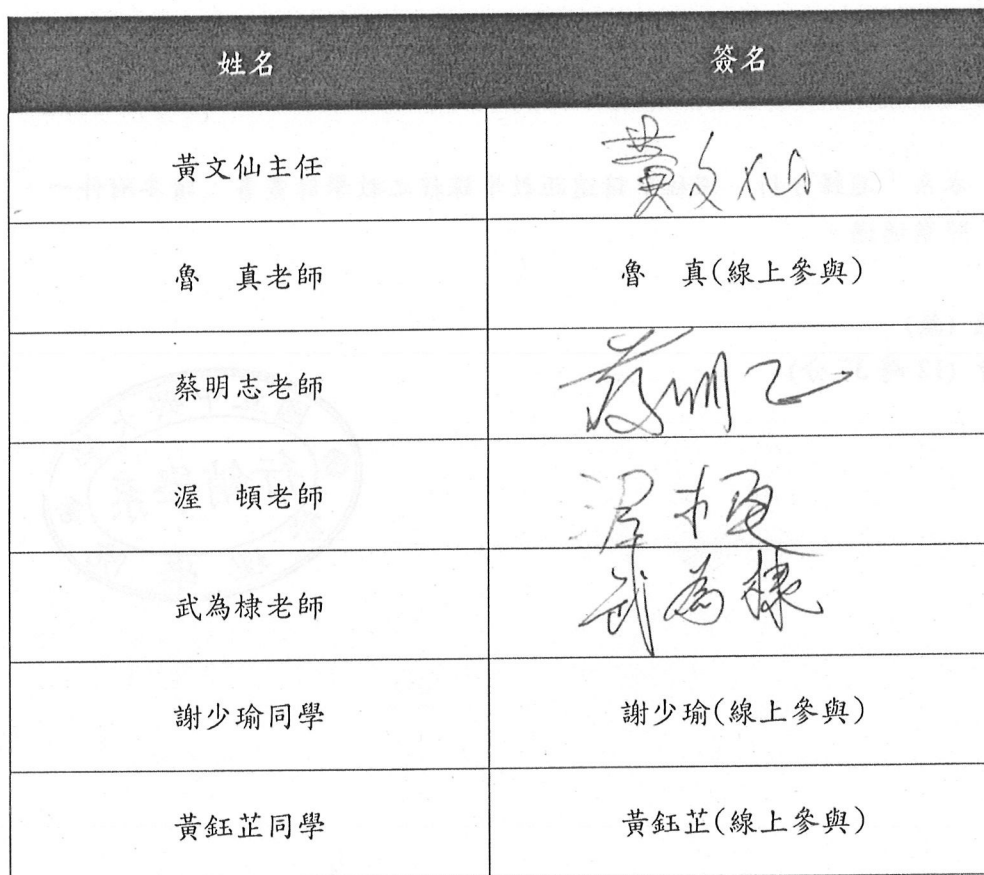 姓名 簽名
黃文仙主任 黃文仙
魯　真老師 魯　真(線上參與)
蔡明志老師
渥　頓老師 渥頓
武為棣老師 武為棣
謝少瑜同學 謝少瑜(線上參與)
黃鈺芷同學 黃鈺芷(線上參與)